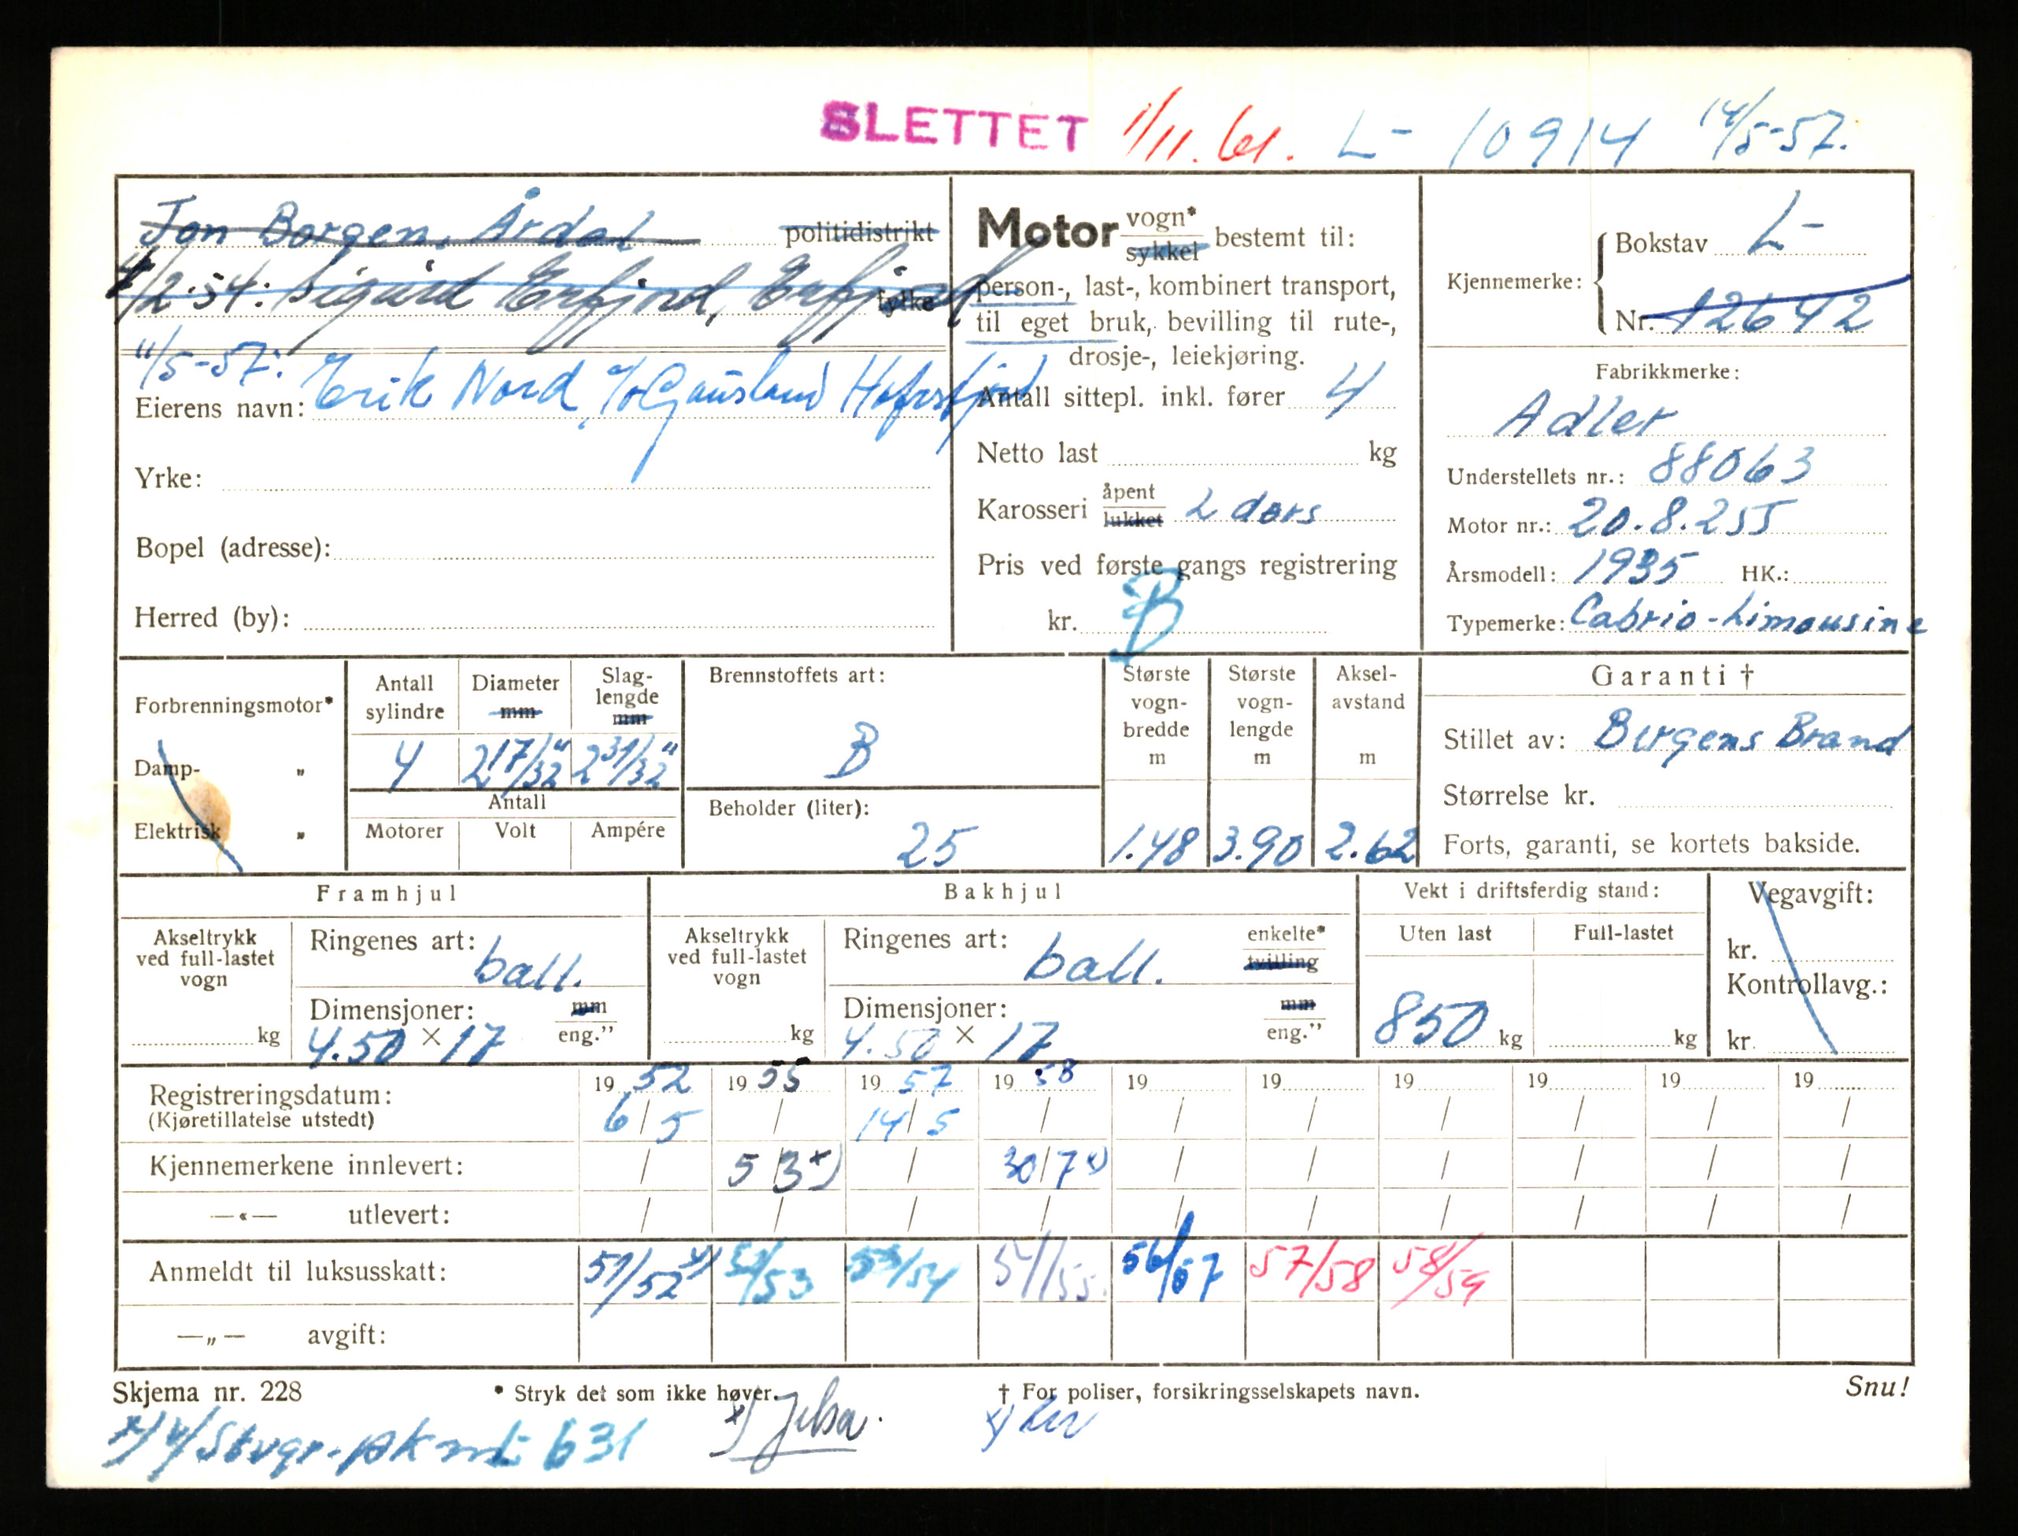 SLETTET 1/11.61. L- 10914 14/5-57.
Jon Borgen, Årdal politidistrikt
4/2-54: Sigurd Erfjord, Erfjord fylke
11/5-57:
Eierens navn: Erik Nord, c/o Gausland Hafrsfjord
Yrke:
Bopel (adresse):
Herred (by):
Motor vogn* sykkel bestemt til:
person-, last-, kombinert transport,
til eget bruk, bevilling til rute-,
drosje-, leiekjøring.
Antall sittepl. inkl. fører 4
Netto last kg
Karosseri åpent lukket 2 dørs
Pris ved første gangs registrering
kr. B
Kjennemerke: Bokstav L-
Nr. 12642
Fabrikkmerke:
Adler
Understellets nr.: 88063
Motor nr.: 20.8.255
Årsmodell: 1935 HK.:
Typemerke: Cabrio-Limousine
Forbrenningsmotor*
Damp- „
Elektrisk „
Antall sylindre Diameter mm Slag-lengde mm
4 2 17/32" 2 31/32"
Antall
Motorer Volt Ampére
Brennstoffets art:
B
Beholder (liter):
25
Største vogn-bredde m 1.48
Største vogn-lengde m 3.90
Aksel-avstand m 2.62
Garanti †
Stillet av: Bergens Brand
Størrelse kr.
Forts, garanti, se kortets bakside.
Framhjul
Akseltrykk ved full-lastet vogn kg
Ringenes art: ball.
Dimensjoner: mm eng.”
4.50 × 17
Bakhjul
Akseltrykk ved full-lastet vogn kg
Ringenes art: ball. enkelte* tvilling
Dimensjoner: mm eng.”
4.50 × 17
Vekt i driftsferdig stand:
Uten last Full-lastet
850 kg kg
Vegavgift:
kr.
Kontrollavg.:
kr.
Registreringsdatum: 19 52 19 55 19 57 19 58 19 19 19 19 19 19
(Kjøretillatelse utstedt) 6/5 / 14/5 / / / / / / /
Kjennemerkene innlevert: / 5/3 x) / 30/7 x) / / / / / /
—«— utlevert: / / / / / / / / / /
Anmeldt til luksusskatt: 51/52 x) 52/53 53/54 54/55 56/57 57/58 58/59
—„— avgift:
Skjema nr. 228 * Stryk det som ikke høver. † For poliser, forsikringsselskapets navn. Snu!
x) Jelsa.
631